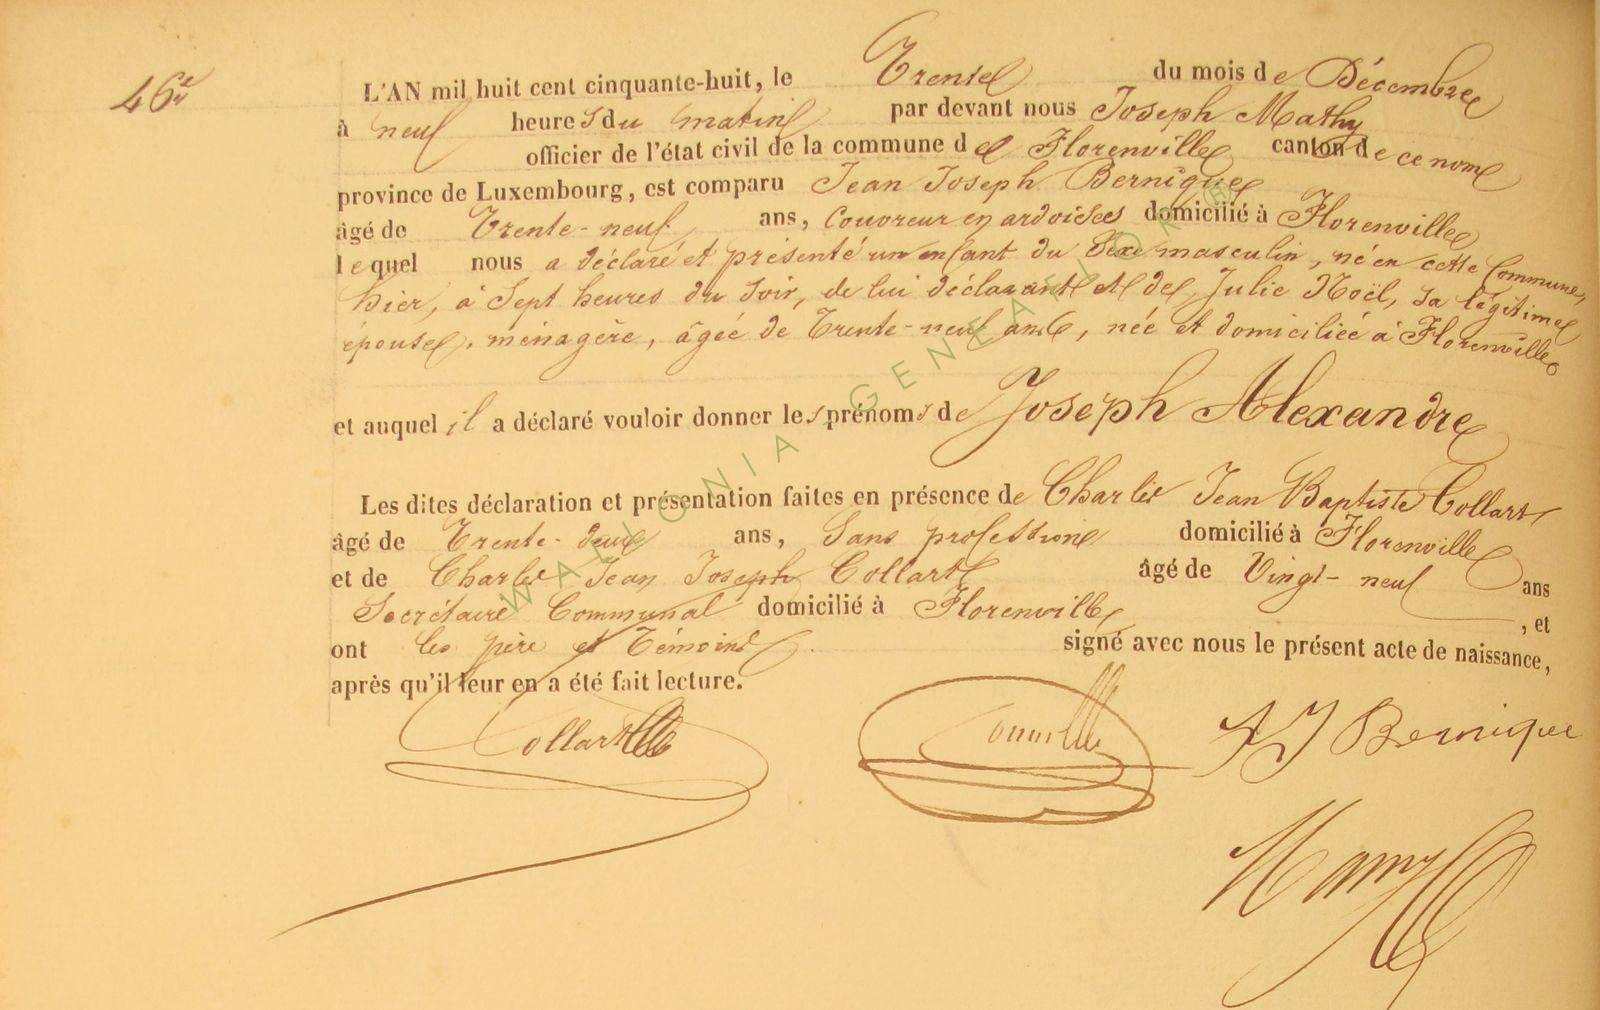 46e
L'AN mil huit cent cinquante-huit, le Trente du mois de Décembre
à neuf heures du matin par devant nous Joseph Mathy
officier de l'état civil de la commune de Florenville canton de ce nom
province de Luxembourg, est comparu Jean Joseph Bernique
âgé de Trente-neuf ans, couvreur en ardoises domicilié à Florenville
lequel nous a déclaré et présenté un enfant du Sexe masculin, né en cette Commune,
hier, à Sept heures du Soir, de lui déclarant et de Julie Noël, sa légitime
épouse, ménagère, âgée de Trente-neuf ans, née et domiciliée à Florenville
et auquel il a déclaré vouloir donner les prénoms de Joseph Alexandre
Les dites déclaration et présentation faites en présence de Charles Jean Baptiste Collart
âgé de Trente-deux ans, Sans profession domicilié à Florenville
et de Charles Jean Joseph Collart âgé de Vingt-neuf ans
Secrétaire Communal domicilié à Florenville, et
ont les père et Témoins signé avec nous le présent acte de naissance,
après qu'il leur en a été fait lecture.
Collart J J Bernique
WALLONIA GENEALOGY